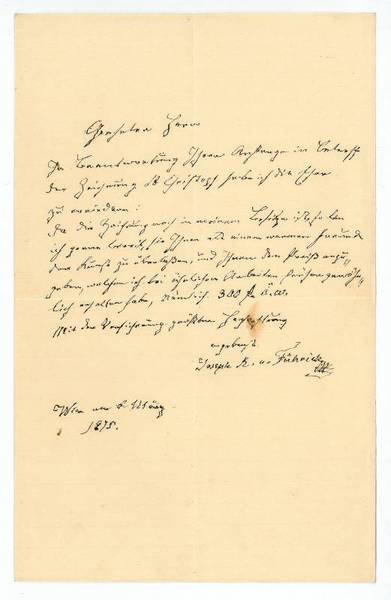 Geehrter Herr
In Beantwortung Ihrer Anfrage in Betreff
der Zeichnung St Christoph habe ich die Ehre
zu erwiedern:
Da die Zeichnung noch in meinem Besitze ist, so bin
ich gerne bereit, sie Ihnen als einem warmen Freunde
der Kunst zu überlaßen, und Ihnen den Preiß anzu„
geben, welchen ich bei ähnlichen Arbeiten
lich erhalten habe, nämlich 300 f ö.w.
Mit der Versicherung größter Hochachtung
ergebenst
Joseph R. v. Führich
Wien am März
1875.